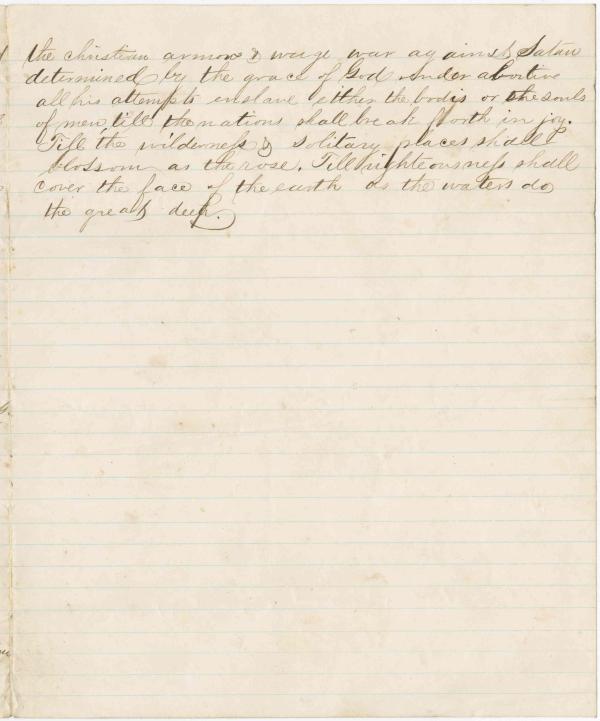 the christian armor & wage war against Satan
determined by the grace of God render abortive
all his attempts enslave either the bodis or the souls
of men, till the nations shall break forth in joy.
Till the wilderness & solitary places shall
blossom as the rose. Till righteousness shall
cover the face of the earth as the waters do
the great deep.